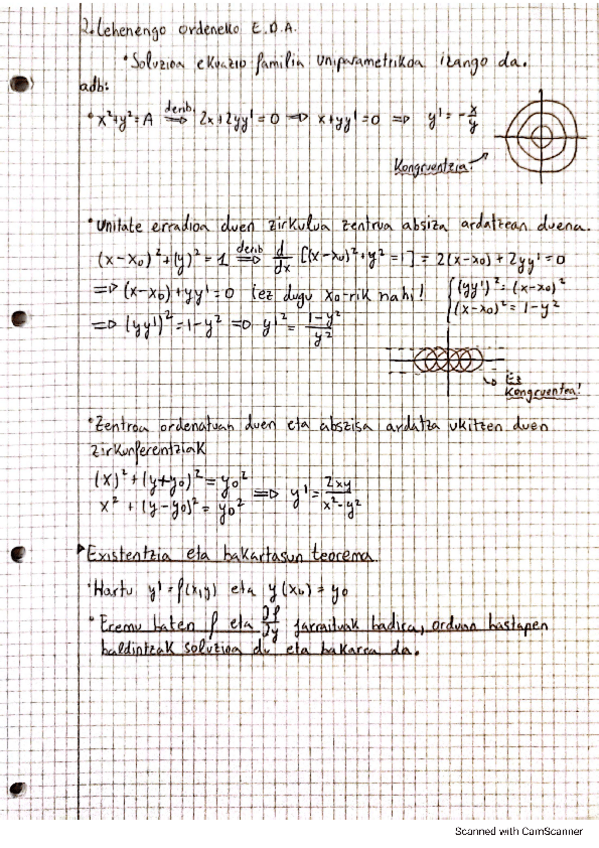 2. Lehenengo ordeneko E.D.A.
• Soluzioa ekuazio familia uniparametrikoa izango da.
adb:
• x²+y²=A derib. ⇒ 2x+2yy'=0 ⇒ x+yy'=0 ⇒ y'=-x/y
Kongruentzia.
• Unitate erradioa duen zirkulua zentrua absiza ardatzean duena.
(x-x₀)²+(y)²=1 derib ⇒ d/dx [(x-x₀)²+y²=1] = 2(x-x₀)+2yy'=0
⇒ (x-x₀)+yy'=0 (ez dugu x₀-rik nahi! { (yy')²=(x-x₀)²
(x-x₀)²=1-y²
⇒ (yy')²=1-y² ⇒ y'²=(1-y²)/y²
↳ Ez
Kongruentea!
• Zentroa ordenatuan duen eta abszisa ardatza ukitzen duen
zirkunferentziak
(x)²+(y+y₀)²=y₀²
x²+(y-y₀)²=y₀² ⇒ y'=2xy/(x²-y²)
▶ Existentzia eta bakartasun teorema
• Hartu y'=f(x,y) eta y(x₀)=y₀
• Eremu baten f eta ∂f/∂y jarraituak badira, orduan hastapen
baldintzak soluzioa du eta bakarra da.
Scanned with CamScanner